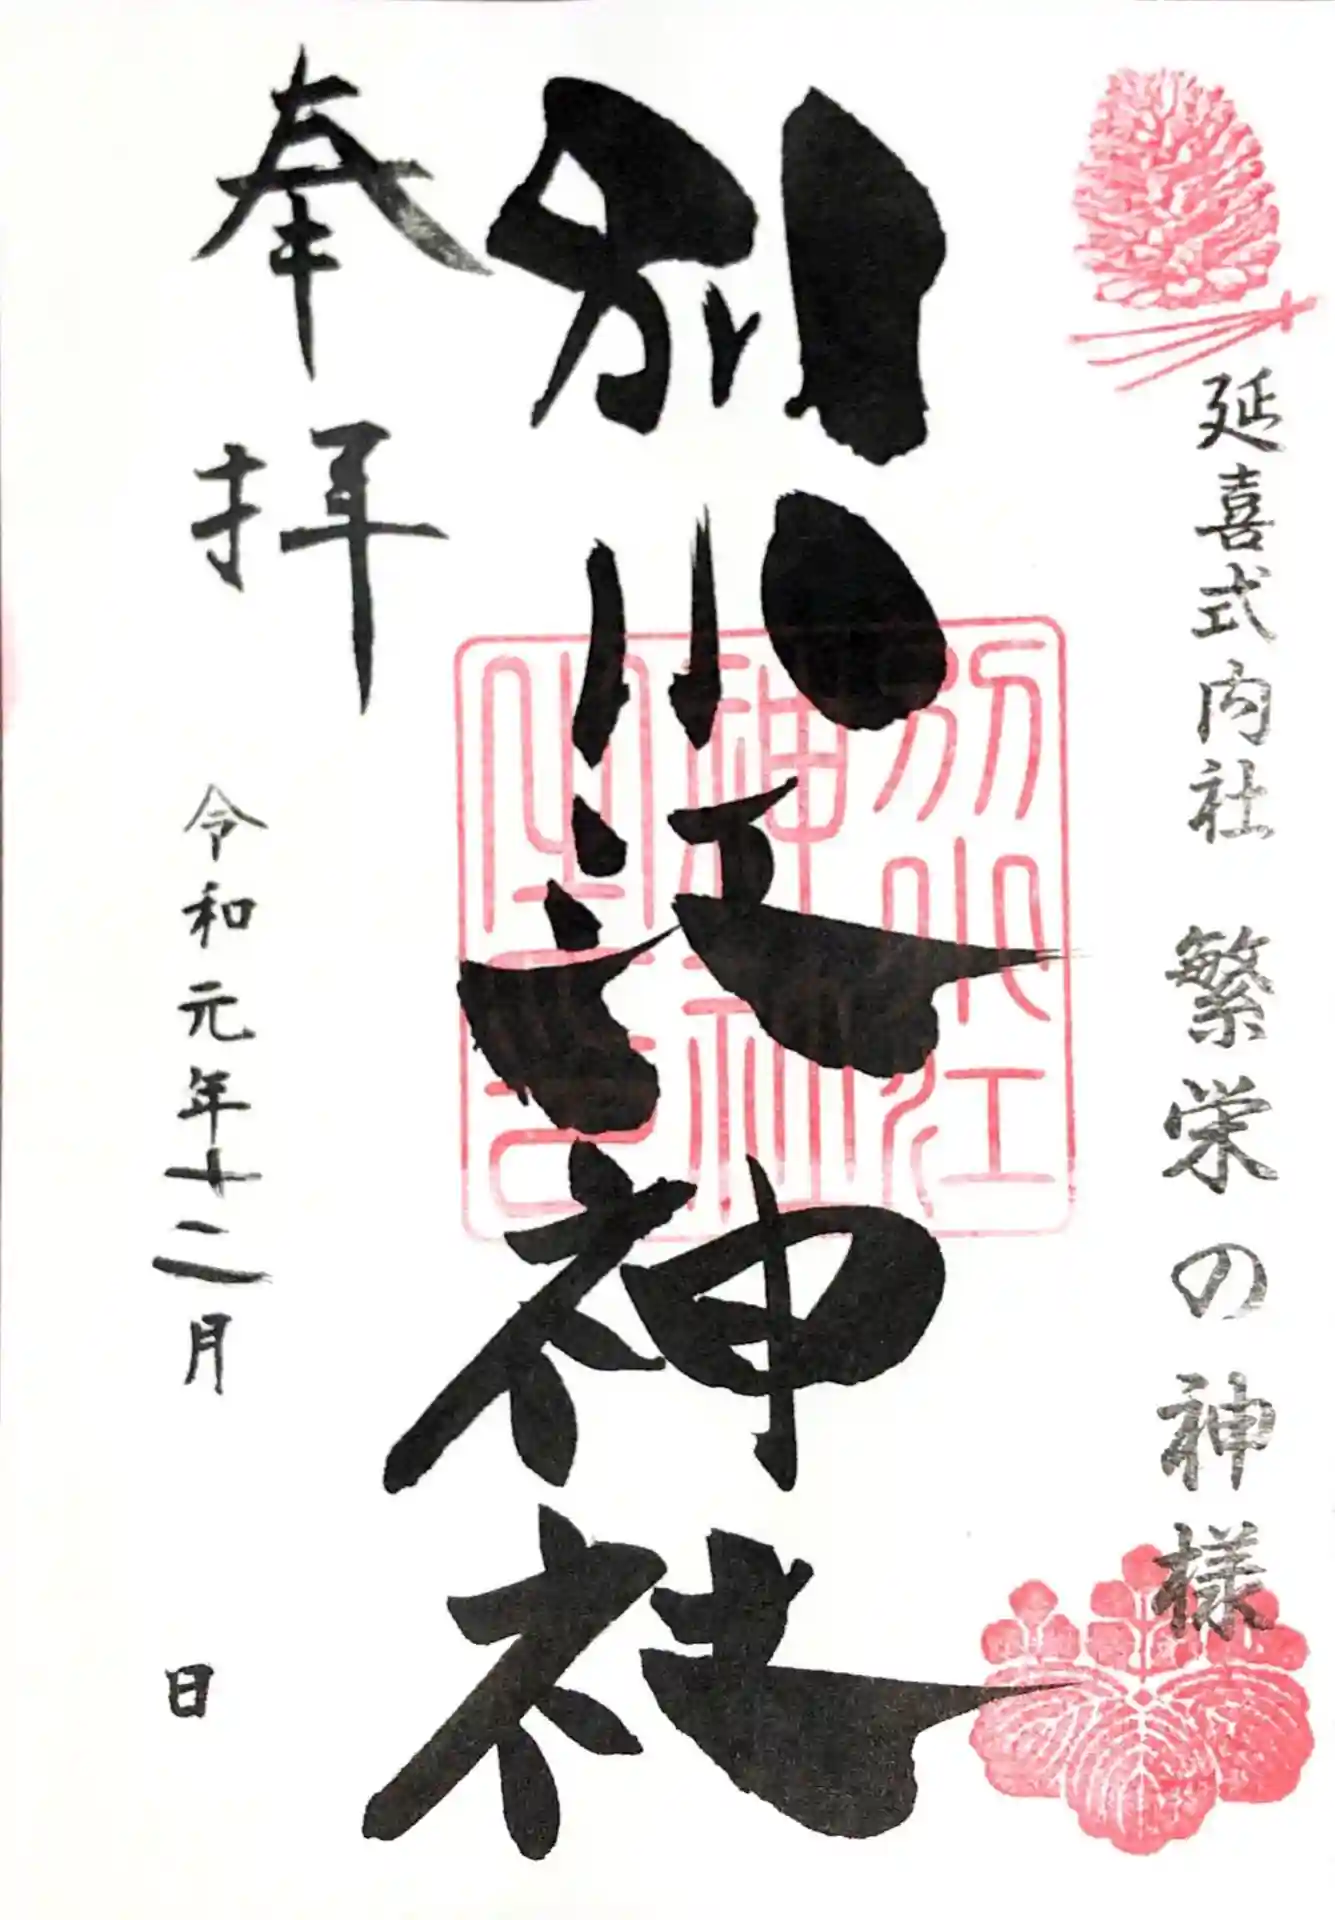 延喜式内社 繁栄の神様
別小江神社
別小江
神社
之印
奉拝
令和元年十二月 日